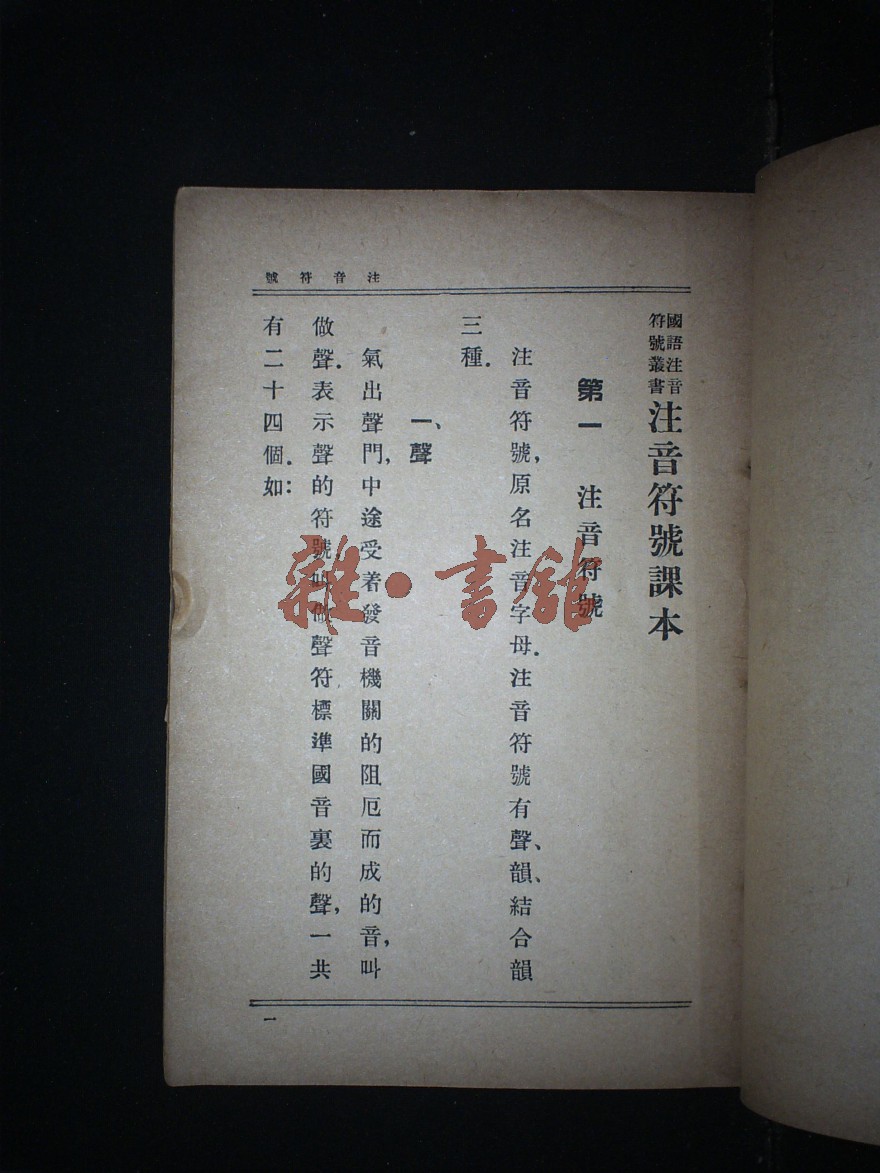 號符音注
國語注音
符號叢書
注音符號課本
第一 注音符號
注音符號,原名注音字母.注音符號有聲、韻、結合韻
三種.
一、聲
氣出聲門,中途受着發音機關的阻厄而成的音,叫
做聲.表示聲的符號,叫做聲符.標準國音裏的聲,一共
有二十四個.如:
一
雜·書館